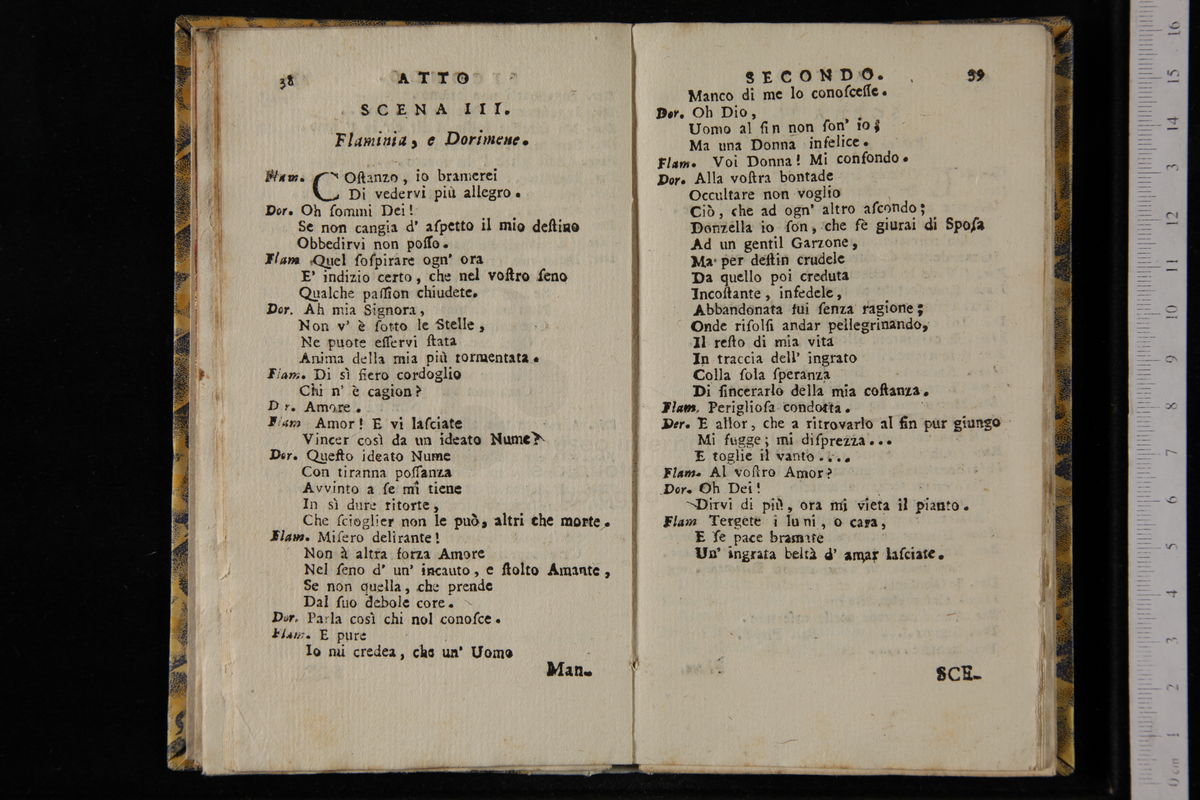 38 ATTO
SCENA III.
Flaminia, e Dorimene.
Flam. COſtanzo, io bramerei
Di vedervi più allegro.
Dor. Oh ſommi Dei!
Se non cangia d' aſpetto il mio deſtino
Obbedirvi non poſſo.
Flam Quel ſoſpirare ogn' ora
E' indizio certo, che nel voſtro ſeno
Qualche paſſion chiudete.
Dor. Ah mia Signora,
Non v' è ſotto le Stelle,
Ne puote eſſervi ſtata
Anima della mia più tormentata.
Flam. Di sì fiero cordoglio
Chi n' è cagion?
D r. Amore.
Flam Amor! E vi laſciate
Vincer così da un ideato Nume?
Dor. Queſto ideato Nume
Con tiranna poſſanza
Avvinto a ſe mi tiene
In sì dure ritorte,
Che ſcioglier non le può, altri che morte.
Flam. Miſero delirante!
Non à altra forza Amore
Nel ſeno d' un' incauto, e ſtolto Amante,
Se non quella, che prende
Dal ſuo debole core.
Dor. Parla così chi nol conoſce.
Flam. E pure
Io mi credea, che un' Uomo
Man-
SECONDO. 39
Manco di me lo conoſceſſe.
Dor. Oh Dio,
Uomo al fin non ſon' io;
Ma una Donna infelice.
Flam. Voi Donna! Mi confondo.
Dor. Alla voſtra bontade
Occultare non voglio
Ciò, che ad ogn' altro aſcondo;
Donzella io ſon, che fè giurai di Spoſa
Ad un gentil Garzone,
Ma per deſtin crudele
Da quello poi creduta
Incoſtante, infedele,
Abbandonata fui ſenza ragione;
Onde riſolſi andar pellegrinando,
Il reſto di mia vita
In traccia dell' ingrato
Colla ſola ſperanza
Di ſincerarlo della mia coſtanza.
Flam. Periglioſa condotta.
Dor. E allor, che a ritrovarlo al fin pur giungo
Mi fugge; mi diſprezza...
E toglie il vanto....
Flam. Al voſtro Amor?
Dor. Oh Dei!
Dirvi di più, ora mi vieta il pianto.
Flam Tergete i lu ni, o cara,
E ſe pace bramate
Un' ingrata beltà d' amar laſciate.
SCE-
16
15
14
13
12
11
10
9
8
7
6
5
4
3
2
1
0 cm